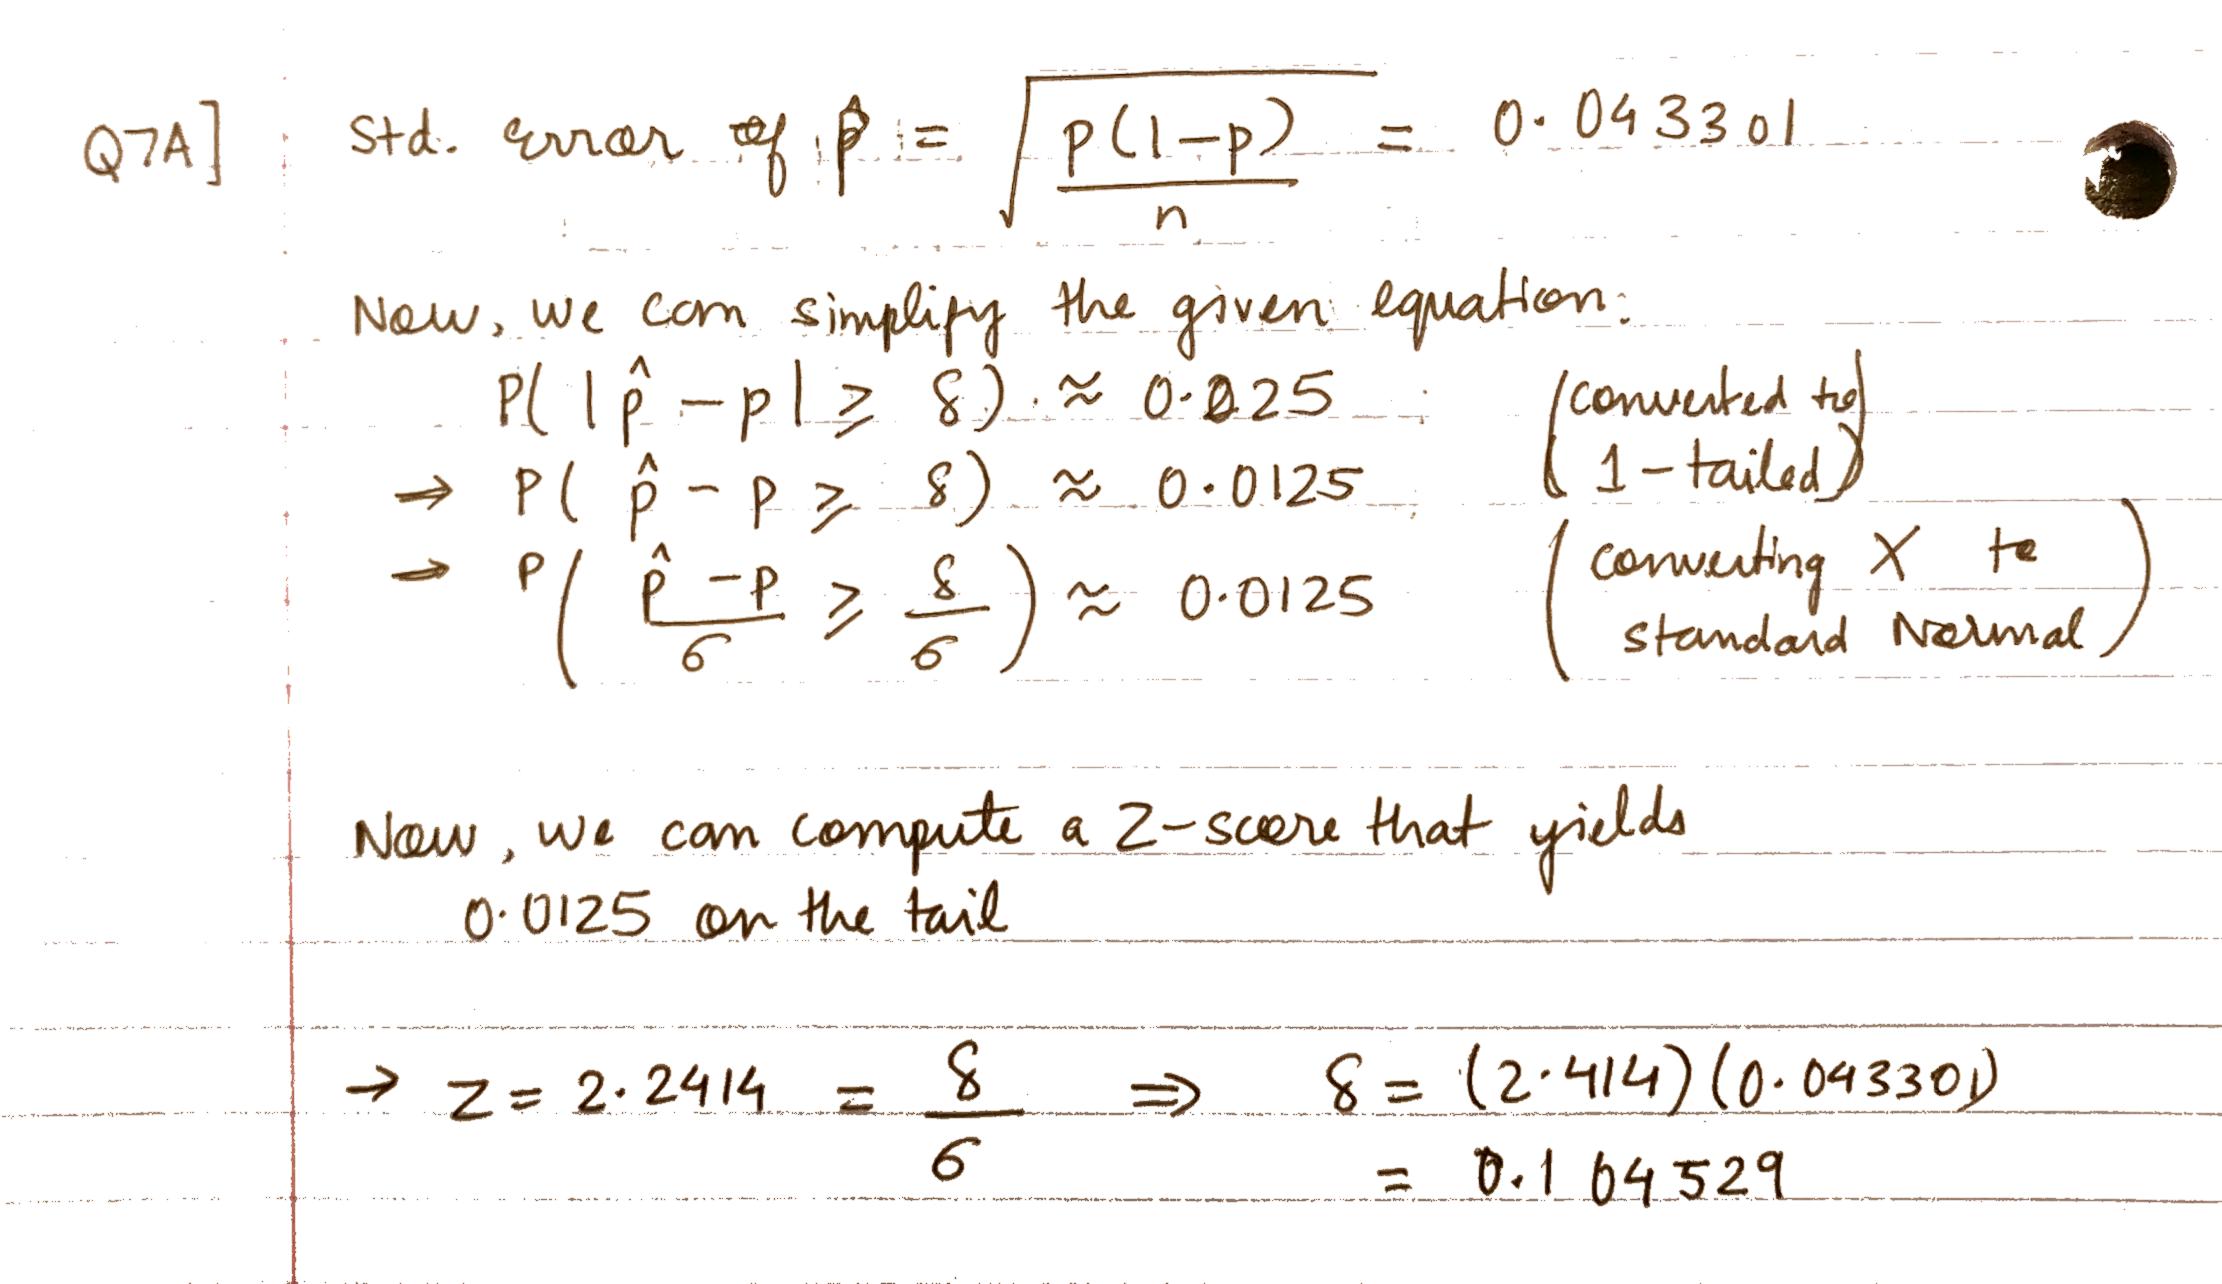 Q7A] Std. error of p̂ = √(p(1-p)/n) = 0.043301
Now, we can simplify the given equation:
P( |p̂ - p| ≥ δ) ≈ 0.025 (converted to
⇒ P( p̂ - p ≥ δ) ≈ 0.0125 1-tailed)
⇒ P( (p̂ - p)/σ ≥ δ/σ ) ≈ 0.0125 (converting X to
standard Normal)
Now, we can compute a Z-score that yields
0.0125 on the tail
→ Z = 2.2414 = δ/σ ⇒ δ = (2.414)(0.043301)
= 0.104529